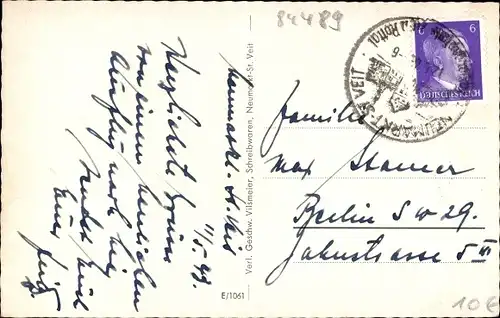 84489
Neumarkt-St. Veit
11/5. 43.
Herzlichste Grüsse
von einem herrlichen
Ausflug nach hier
sendet Euch
Euer
Verl. Geschw. Vilsmeier, Schreibwaren, Neumarkt-St. Veit
E/1061
NEUMARKT-ST. VEIT
Rottal
6
DEUTSCHES REICH
Familie
Max Stamer
Berlin SW 29.
Jahnstrasse 5 III
10€